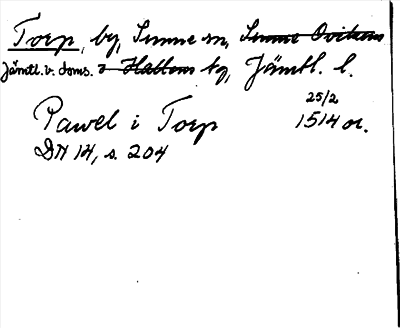 Torp, by, Sunne sn, Sunne Ovikens
Jämtl. v. doms. o Hallens tg, Jämtl. l.
25/2
Pawel i Torp 1514 or.
DN 14, s. 204